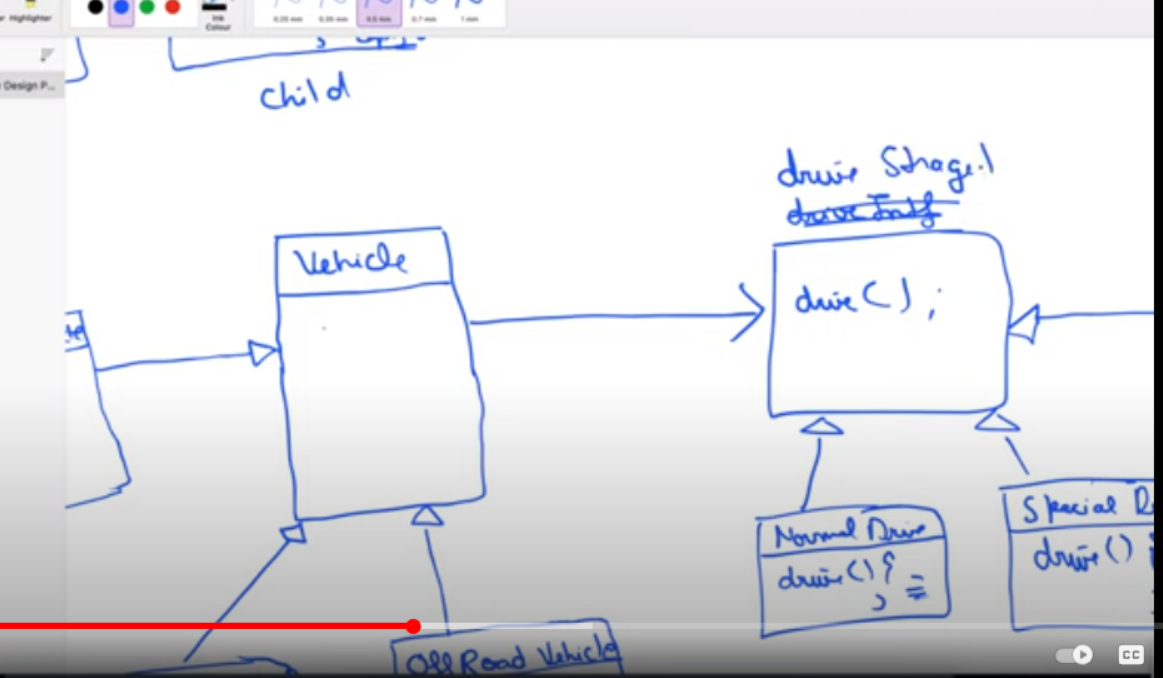 Highlighter
Ink
Colour
0.25 mm
0.35 mm
0.5 mm
0.7 mm
1 mm
Design P...
Child
drive
drive Intf
Vehicle
drive();
Normal Drive
drive(){
}
Special
drive()
Off Road Vehicle
CC